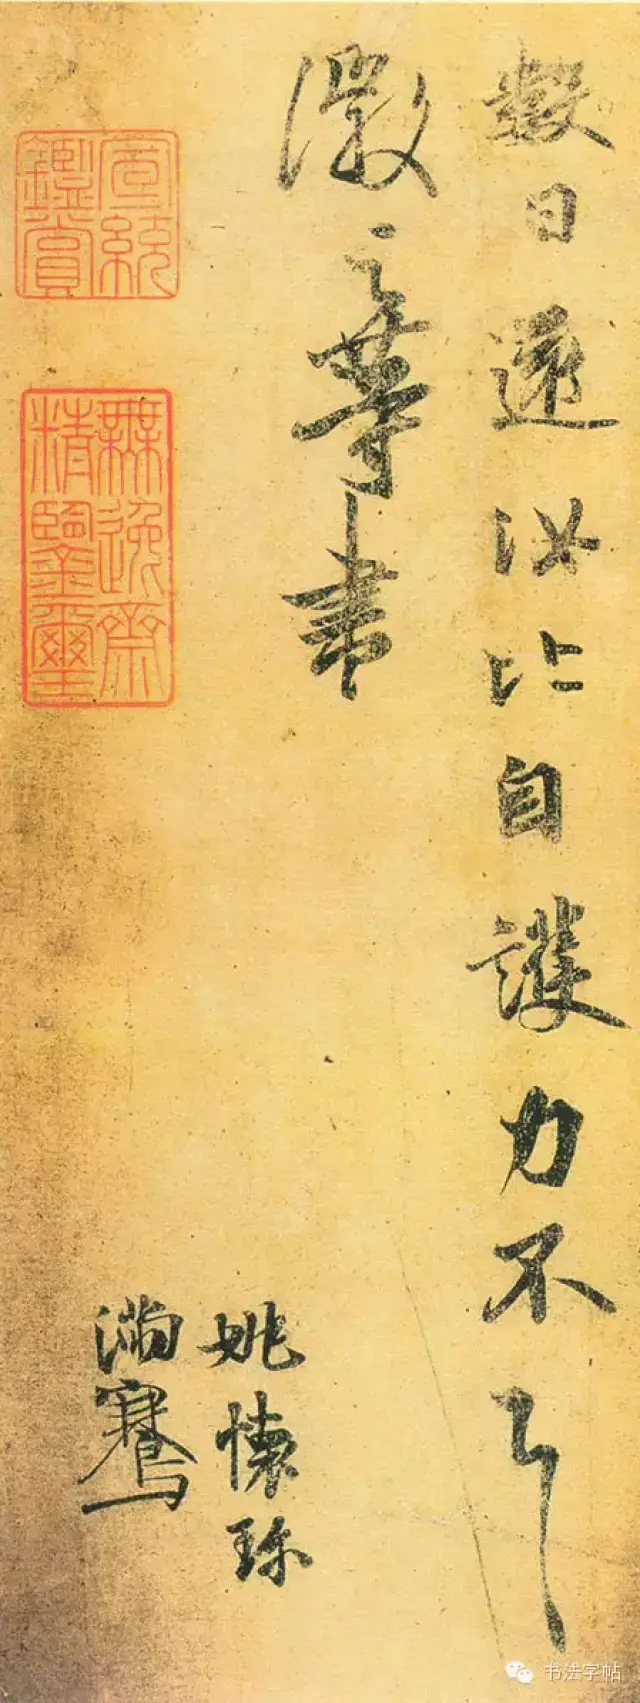 數日還汝比自護力不具
徽之等書
姚懷珍
滿騫
宣統鑑賞
無逸齋精鑒璽
书法字帖